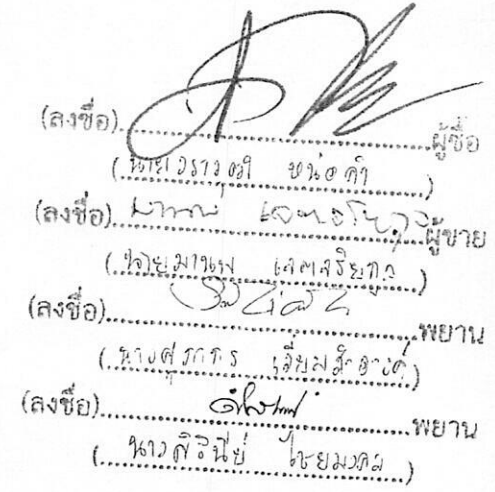 (ลงชื่อ)..........ผู้ซื้อ
(นายวราวุฒิ หน่อคำ)
(ลงชื่อ) มานพ ..........ผู้ขาย
(นายมานพ เจตจริยกูล)
(ลงชื่อ)..........พยาน
(นางศุภากร เอี่ยมสำอางค์)
(ลงชื่อ)..........พยาน
(นางสิรินีย์ ไชยมงคล)